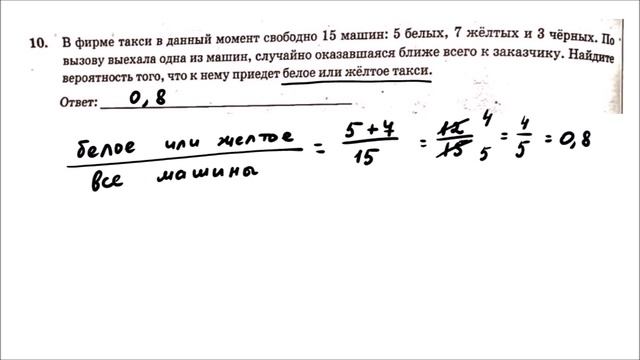 10. В фирме такси в данный момент свободно 15 машин: 5 белых, 7 жёлтых и 3 чёрных. По
вызову выехала одна из машин, случайно оказавшаяся ближе всего к заказчику. Найдите
вероятность того, что к нему приедет белое или жёлтое такси.
Ответ: 0,8
белое или желтое / все машины = 5+7 / 15 = 12 4 / 15 5 = 4/5 = 0,8